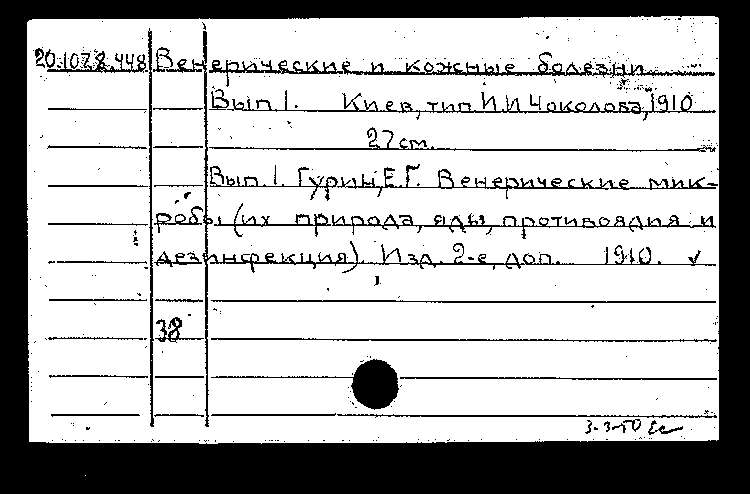 20.107.8.448 Венерические и кожные болезни
Вып 1. Киев, тип И.И Чоколова, 1910
27 см.
Вып. 1. Гурин, Е.Г. Венерические мик-
робы (их природа, яды, противоядия и
дезинфекция). Изд. 2-е, доп. 1910. ✓
38
3-3-50